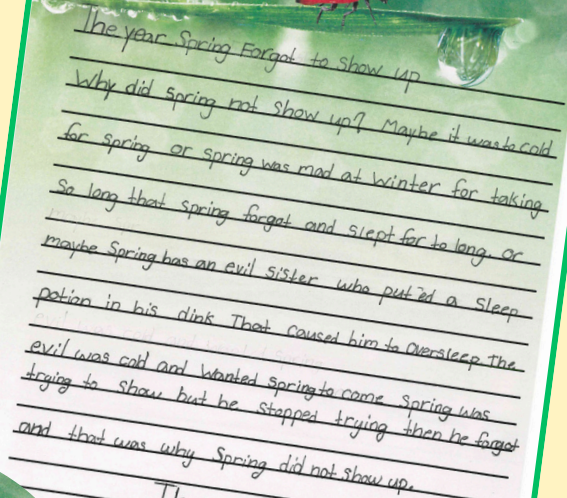 The year Spring Forgot to show up
Why did spring not show up? Maybe it was to cold
for spring or spring was mad at winter for taking
So long that spring forgot and slept for to long. or
maybe Spring has an evil sister who put'ed a sleep
potion in his dink That caused him to oversleep. The
evil was cold and wanted spring to come Spring was
trying to show but he stopped trying then he forgot
and that was why Spring did not show up.